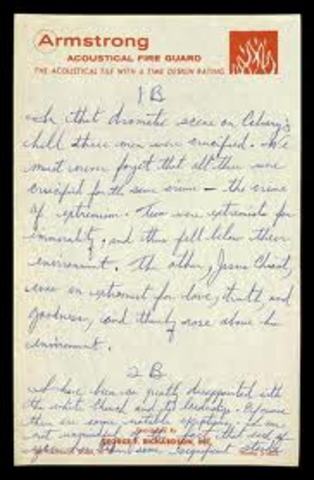 Armstrong
ACOUSTICAL FIRE GUARD
THE ACOUSTICAL TILE WITH A TIME DESIGN RATING
1 B
In that dramatic scene on Calvary's
hill three men were crucified. We
must never forget that all three were
crucified for the same crime — the crime
of extremism. Two were extremists for
immorality, and thus fell below their
environment. The other, Jesus Christ,
was an extremist for love, truth, and
goodness, and thereby rose above his
environment.
2 B
I have been so greatly disappointed with
the white church and its leadership. Of course
there are some notable exceptions. I am
not unmindful of the fact that each of
some significant
GEORGE F. RICHARDSON, INC.